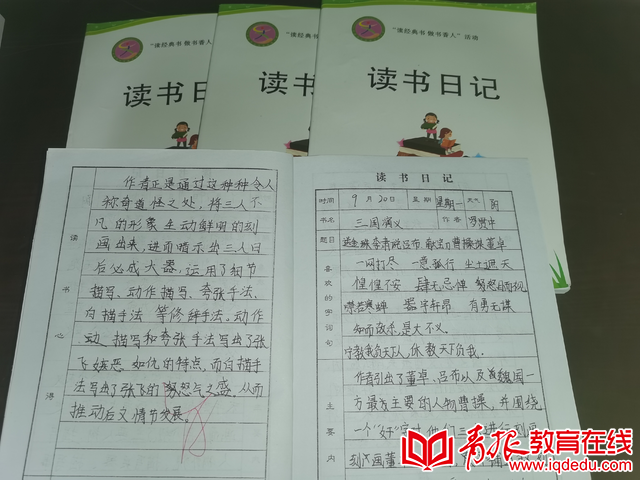 "读经典书 做书香人"活动
读书日记
"读经典书 做书香人"活动
读书日记
"读经典书 做书香人"活动
读书日记
读书心得
作者正是通过这种种令人
称奇道怪之处，将三人不
凡的形象生动鲜明的刻
画出来，进而暗示出三人日
后必成大器，运用了细节
描写、动作描写、夸张手法、
白描手法等修辞手法。动作
动描写和夸张手法写出了张
飞嫉恶如仇的特点，而白描手
法写出了张飞的怒气之盛，从而
推动后文情节发展。
读书日记
时间 9月20日 星期 星期一 天气 阴
书名 三国演义 作者 罗贯中
题目 李肃说吕布 曹操 董卓
喜欢的字词句
一网打尽 一意孤行 尘土遮天
惶惶不安 肆无忌惮 怒目而视
噤若寒蝉 器宇轩昂 有勇无谋
知而故杀是大不义。
宁教我负天下人，休教天下人负我。
主要内
作者引出了董卓、吕布以及魏国一
方最为主要的人物曹操，并围绕
一个"奸"字
刻画董
青报教育在线
www.iqdedu.com